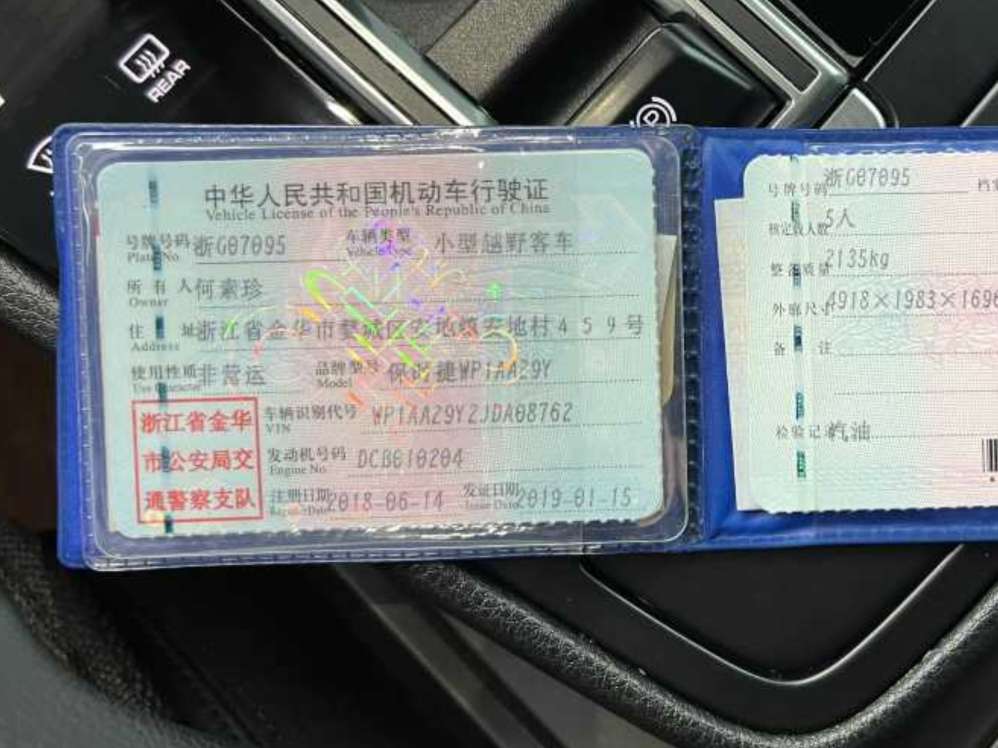 REAR
中华人民共和国机动车行驶证
Vehicle License of the People's Republic of China
号牌号码 浙G07095 车辆类型 小型越野客车
Plate No. Vehicle Type
所有人 何素珍
Owner
住址 浙江省金华市婺城区安地镇安地村459号
Address
使用性质 非营运 品牌型号 保时捷WP1AA29Y
Use Character Model
浙江省金华
市公安局交
通警察支队
车辆识别代号 WP1AA29Y2JDA08762
VIN
发动机号码 DCB010204
Engine No.
注册日期 2018-06-14 发证日期 2019-01-15
Register Date Issue Date
号牌号码 浙G07095
核定载人数 5人
整备质量 2135kg
外廓尺寸 4918×1983×1696
备注
检验记录 汽油